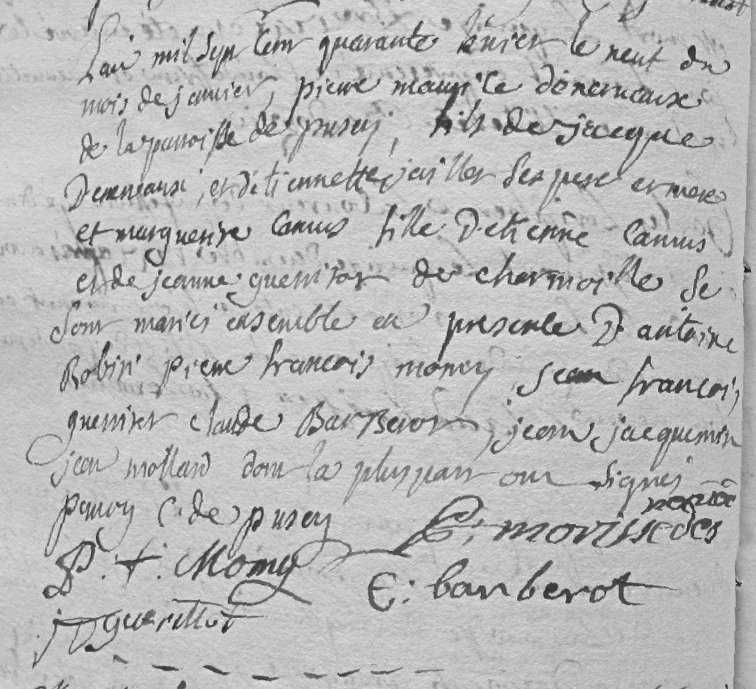 Lan mil sept cent quarante le neuf du
mois de janvier, pierre maurice demeneaux
de la paroisse de pusey, fils de jacque
Demeneaux, et détiennette ses pere et mere
et marguerite Camus fille Detienne Camus
et de jeanne guerritot de charmoille se
sont mariés ensemble en presence D antoine
Robin pierre francois money jean francois
guerritot claude Barberot, jean jacquemin
jean mollard dont la pluspart ont signés
C. de pusey
C: morisse
P. f. Momy
C: barberot
j guerittot